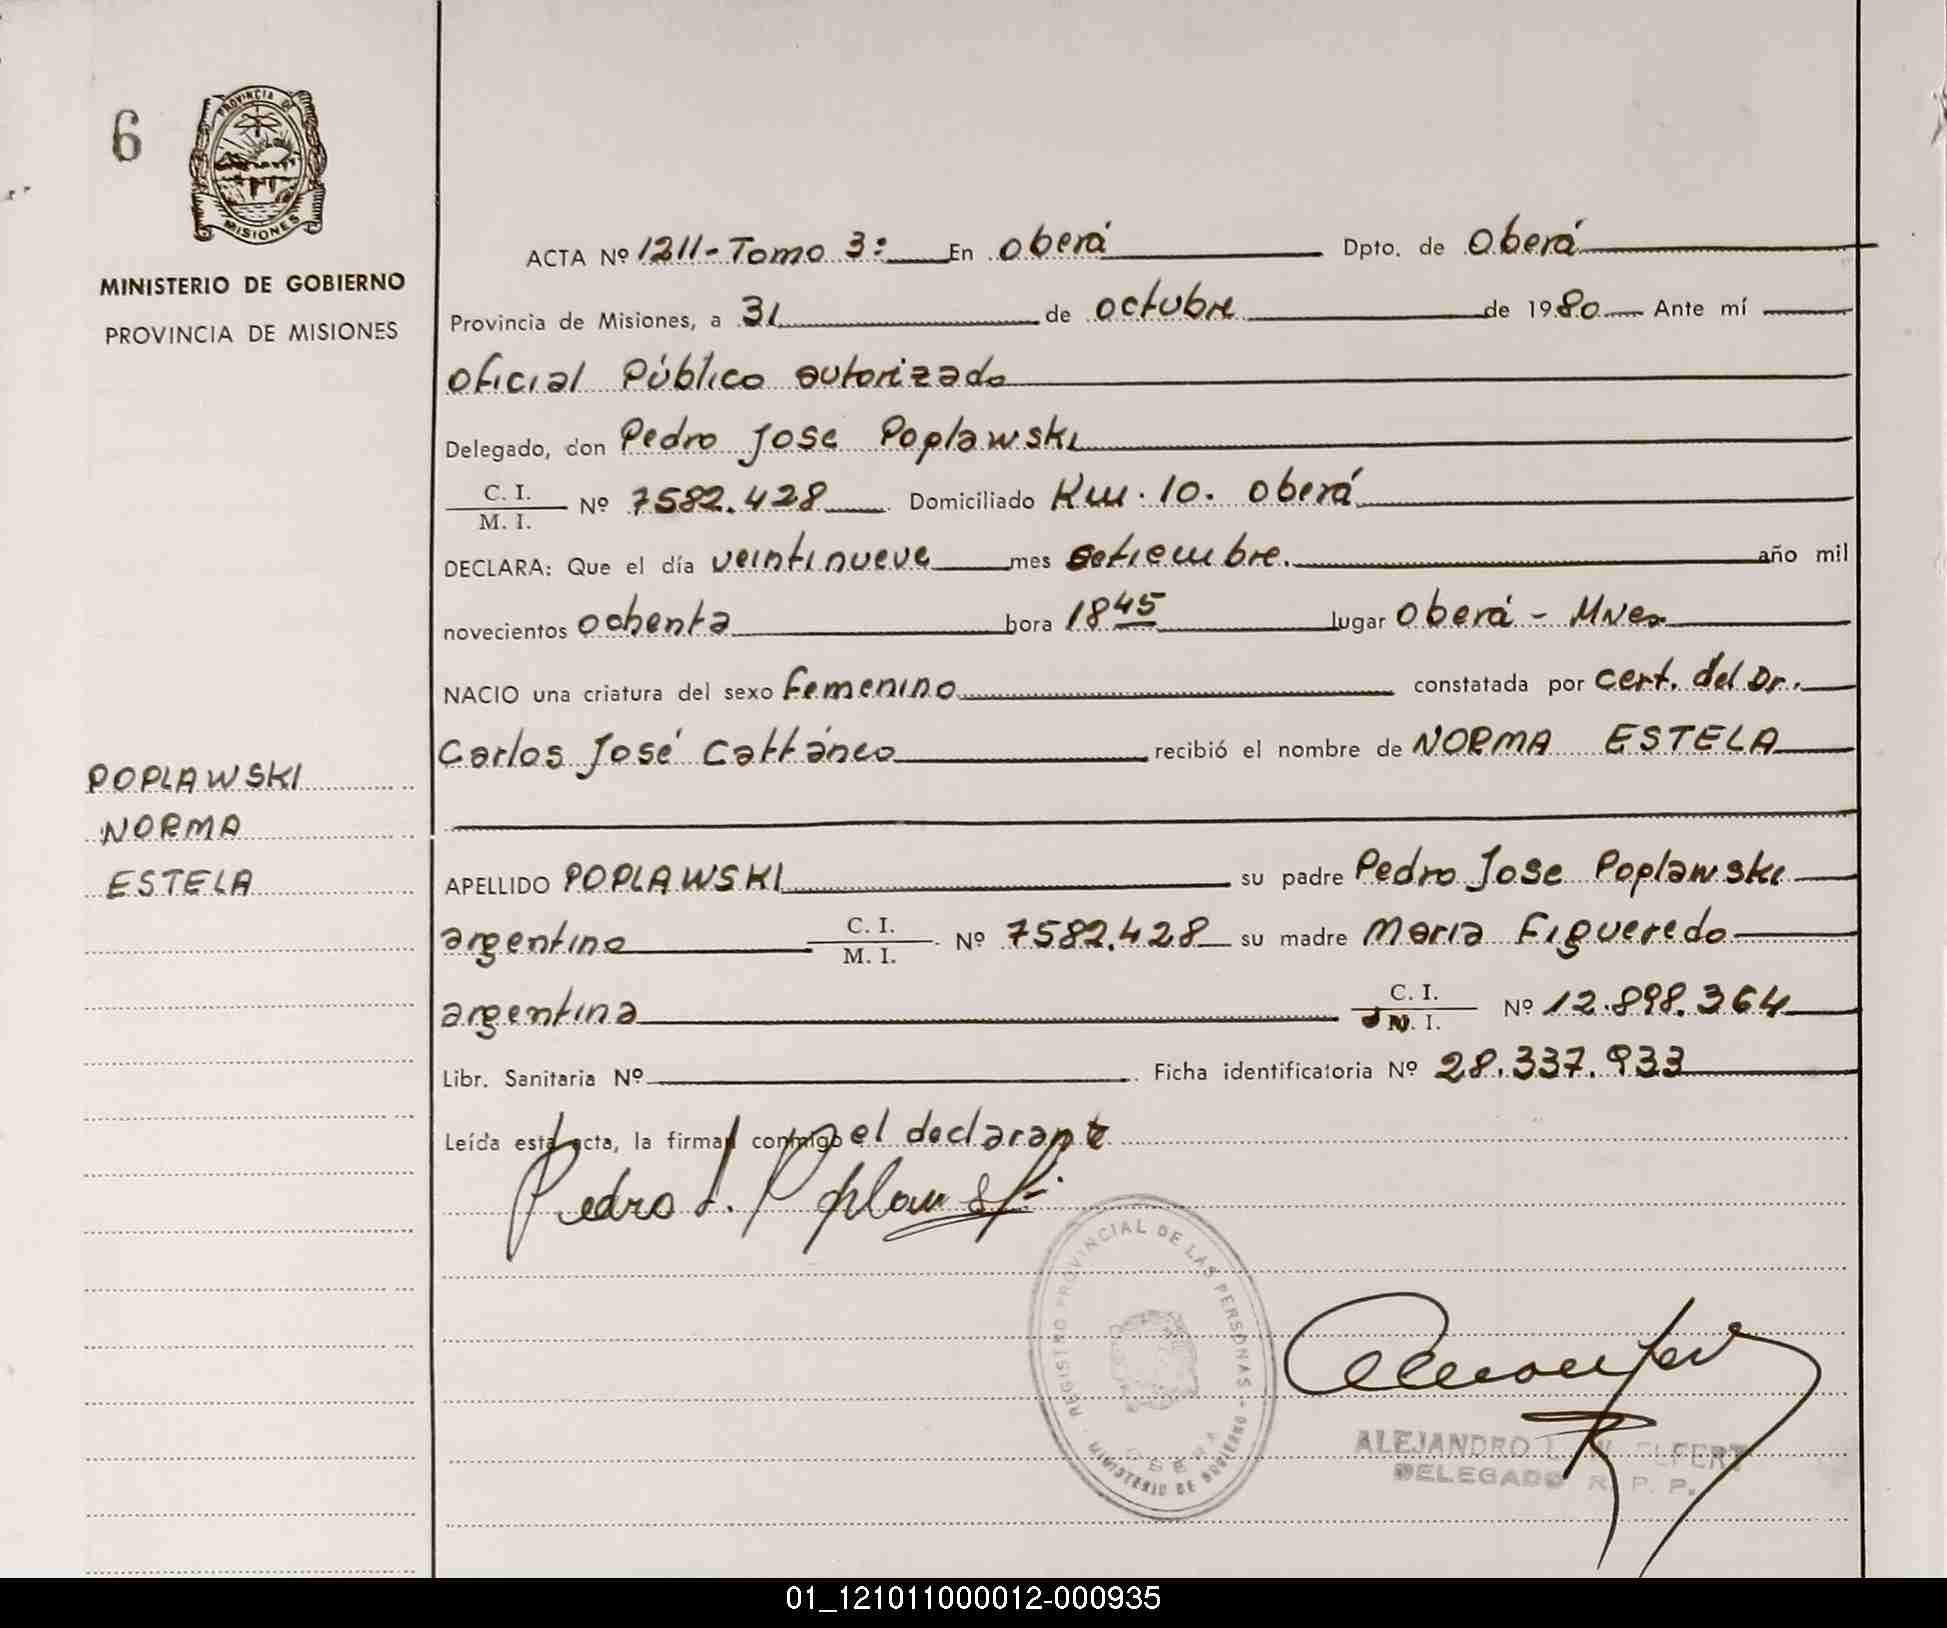 6
PROVINCIA DE
MISIONES
MINISTERIO DE GOBIERNO
PROVINCIA DE MISIONES
ACTA Nº 1211-Tomo 3: En Oberá Dpto. de Oberá
Provincia de Misiones, a 31 de octubre de 1980 Ante mí
Oficial Público autorizado
Delegado, don Pedro Jose Poplawski
C. I.
M. I. Nº 7582.428 Domiciliado Km. 10. Oberá
DECLARA: Que el día veintinueve mes setiembre. año mil
novecientos ochenta hora 18 45 lugar Oberá - Mnes
NACIO una criatura del sexo femenino constatada por cert. del Dr.
Carlos José Cattáneo recibió el nombre de NORMA ESTELA
POPLAWSKI
NORMA
ESTELA
APELLIDO POPLAWSKI su padre Pedro Jose Poplawski
argentino C. I.
M. I. Nº 7582.428 su madre Maria Figueredo
argentina C. I.
N. I. Nº 12.898.364
Libr. Sanitaria Nº Ficha identificatoria Nº 28.337.933
Leída esta acta, la firman conmigo el declarante
Pedro J. Poplawski
REGISTRO PROVINCIAL DE LAS PERSONAS
OBERA
MINISTERIO DE GOBIERNO
ALEJANDRO
DELEGADO R. P. P.
01_121011000012-000935